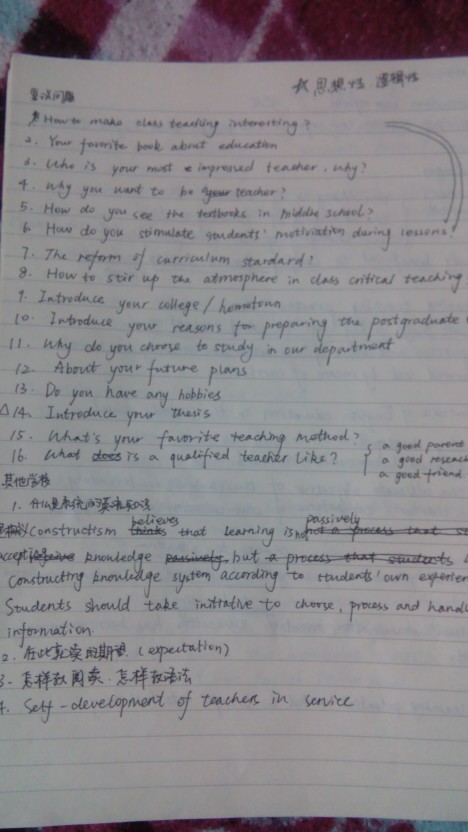 思想性 逻辑性
复试问题
1. How to make class teaching interesting?
2. Your favorite book about education
3. Who is your most impressed teacher, why?
4. Why you want to be teacher?
5. How do you see the textbooks in middle school?
6. How do you stimulate students' motivation during lessons?
7. The reform of curriculum stardard?
8. How to stir up the atmosphere in class critical teaching.
9. Introduce your college/hometown
10. Introduce your reasons for preparing the postgraduate
11. Why do you choose to study in our department
12. About your future plans
13. Do you have any hobbies
△14. Introduce your thesis
15. What's your favorite teaching method?
16. What is a qualified teacher like?
a good parent
a good resear
a good friend
其他学校
1. 什么是
Constructism believes that learning is not passively
accept knowledge but
Constructing knowledge system according to students' own experien
Students should take initiative to choose, process and handl
information.
2. 在此 的期望 (expectation)
3. 怎样教阅读. 怎样教语法
4. Self-development of teachers in service